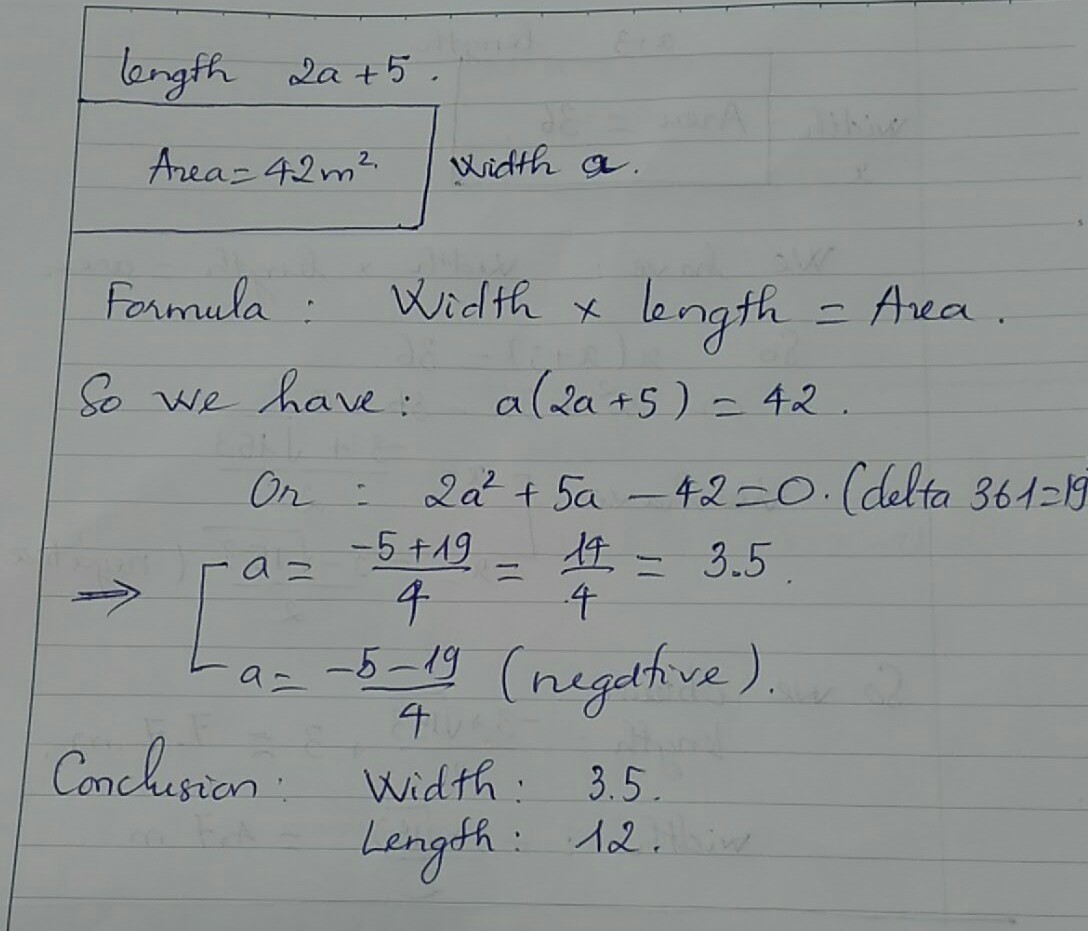 length 2a + 5.
Area = 42m².
Width a.
Formula : Width × length = Area.
So we have : a(2a + 5) = 42.
Or : 2a² + 5a - 42 = 0. (delta 361 = 19
⇒ a = -5 + 19 / 4 = 14 / 4 = 3.5.
a = -5 - 19 / 4 (negative).
Conclusion : Width : 3.5.
Length : 12.